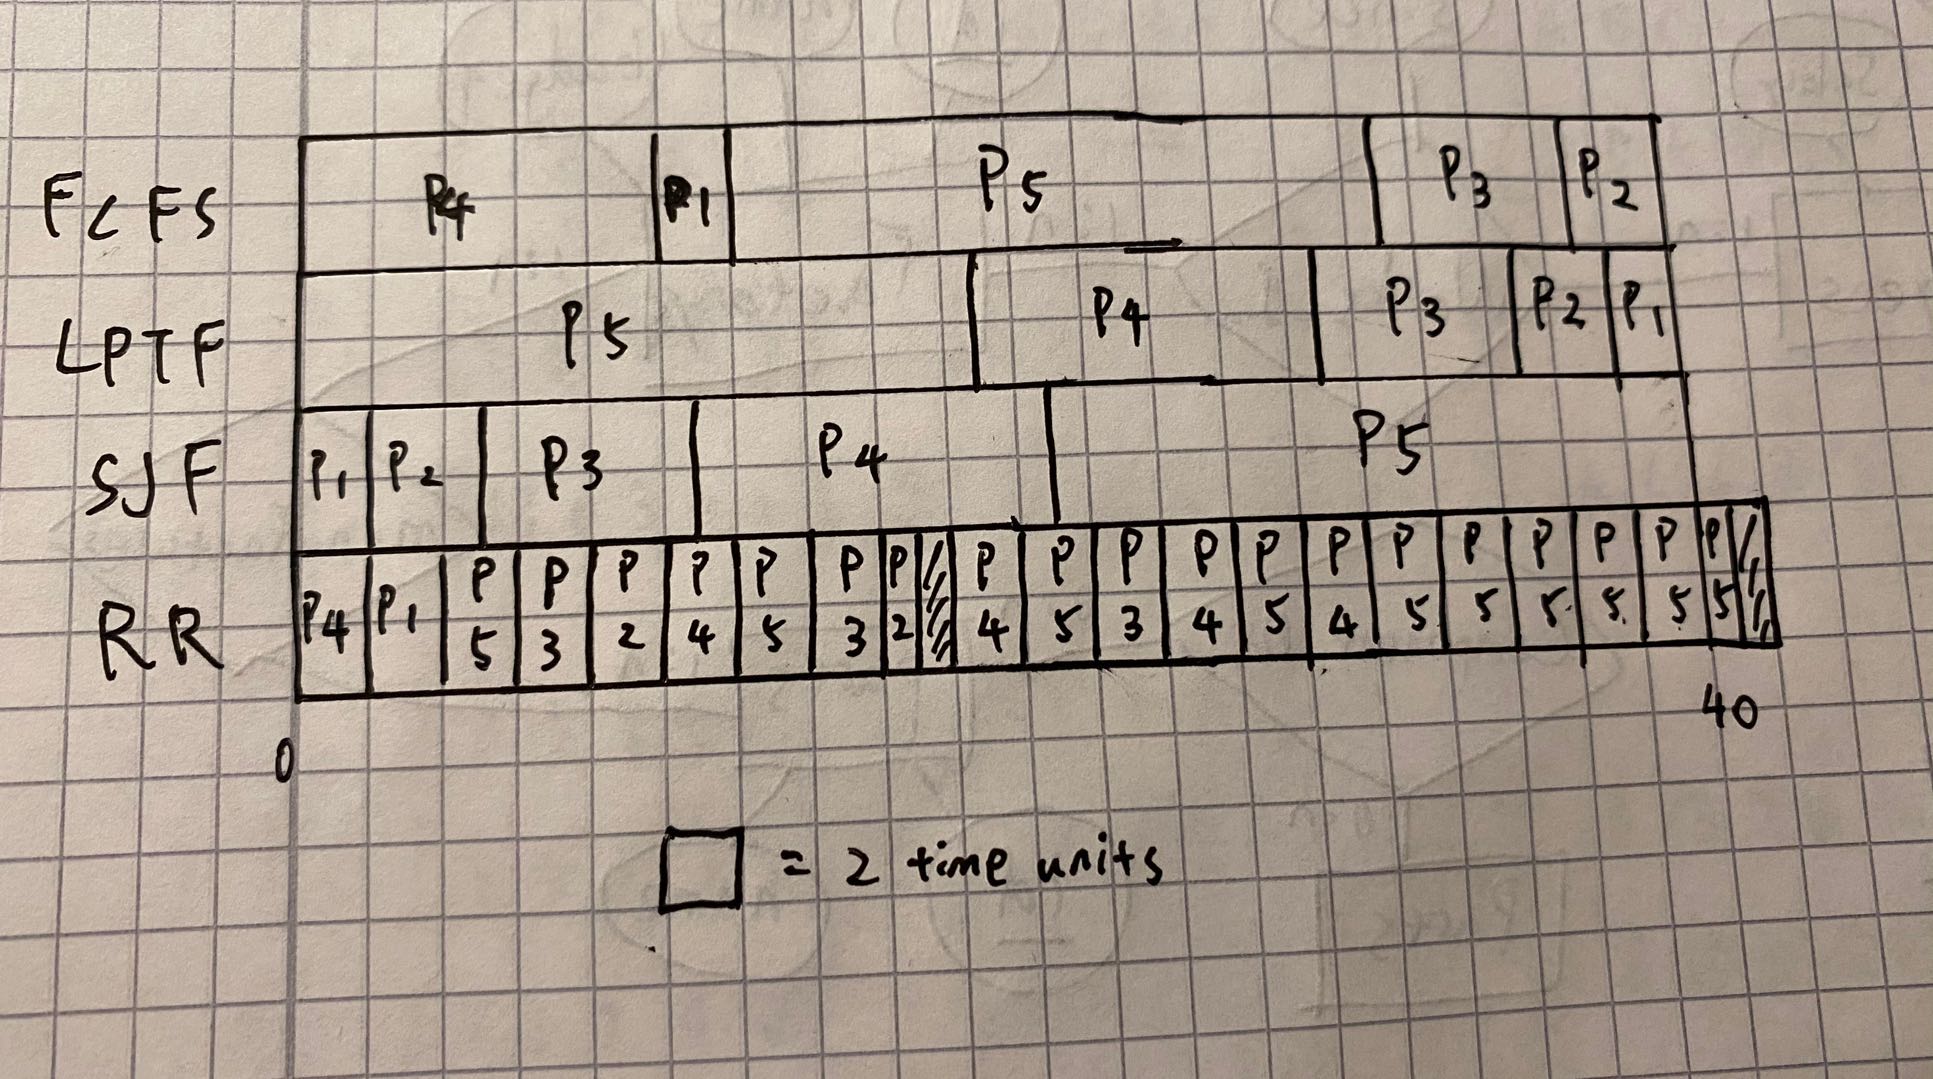 FCFS P4 P1 P5 P3 P2
LPTF P5 P4 P3 P2 P1
SJF P1 P2 P3 P4 P5
RR P4 P1 P5 P3 P2 P4 P5 P3 P2 P4 P5 P3 P4 P5 P4 P5 P5 P5 P5 P5 P5
0 40
= 2 time units